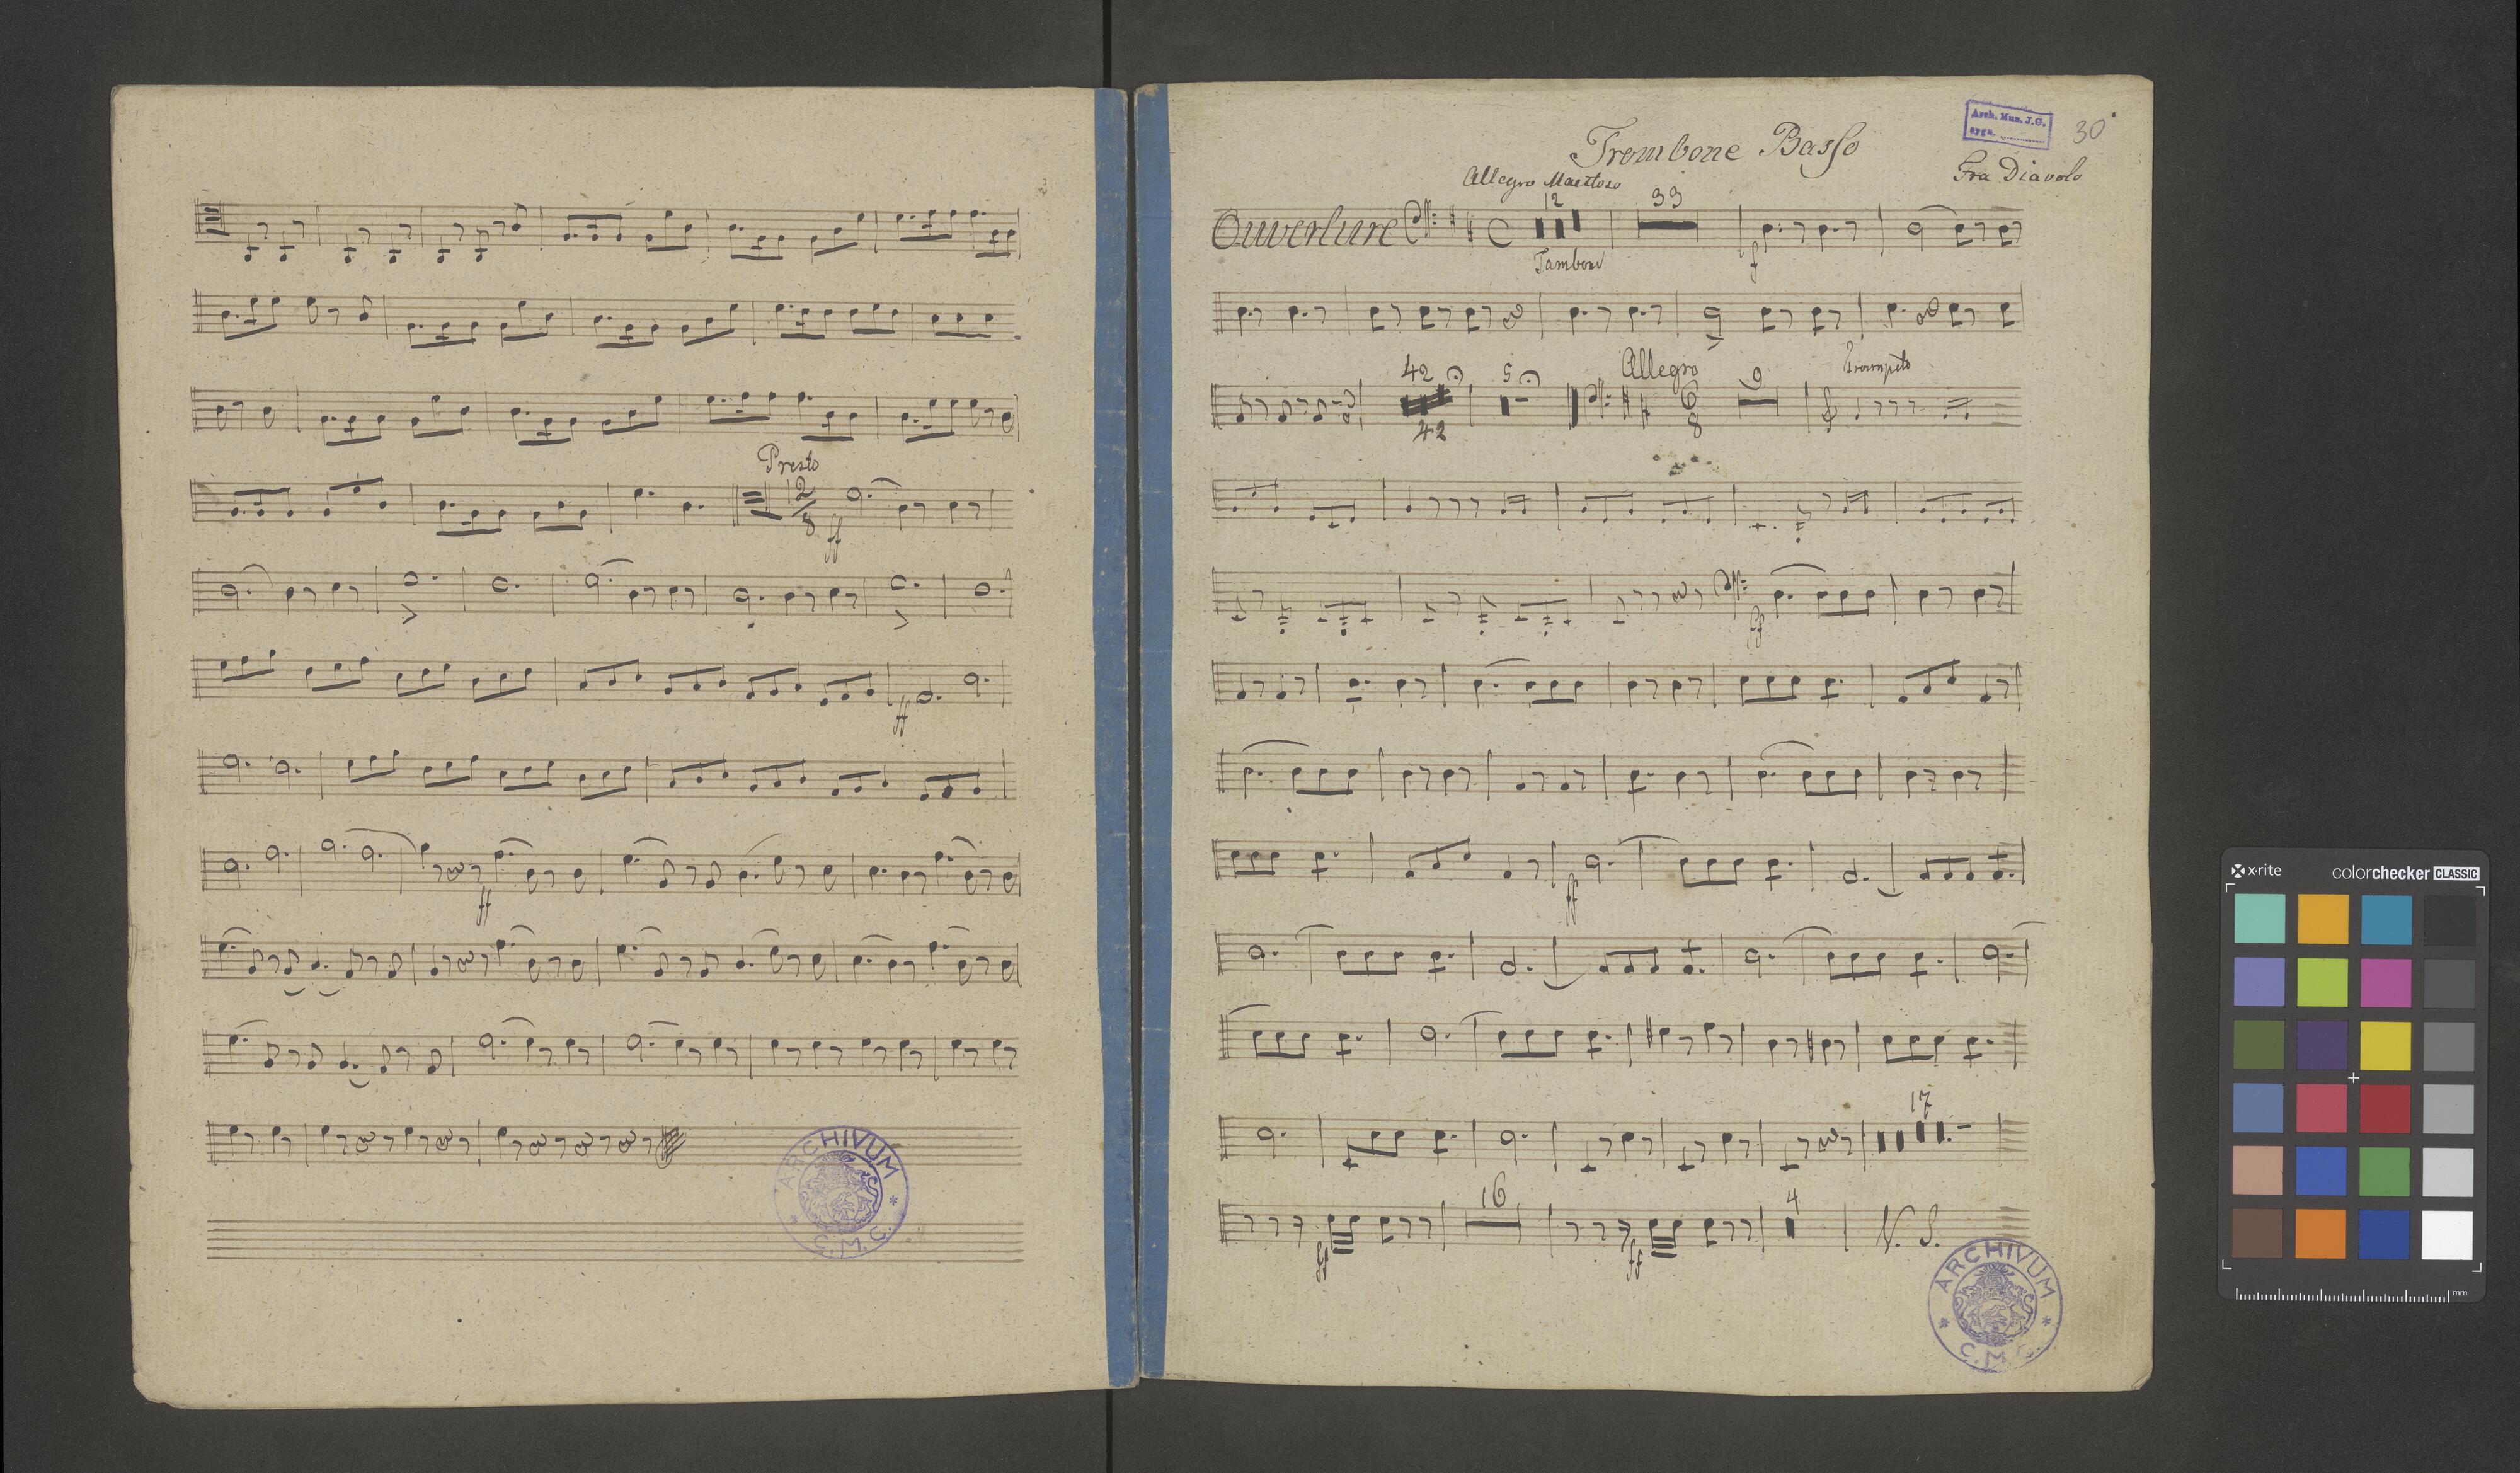 Presto
2/8
ff
ff
ff
ARCHIVUM
C. M. C.
Arch. Mus. J.G.
sygn.
30
Trombone Basso
Fra Diavolo
Allegro Maestoso
12
33
Ouverture
f
42
5
Allegro
9
6
8
42
ff
ff
17
16
4
ff
ff
V. S.
ARCHIVUM
C. M.
x·rite
colorchecker CLASSIC
mm